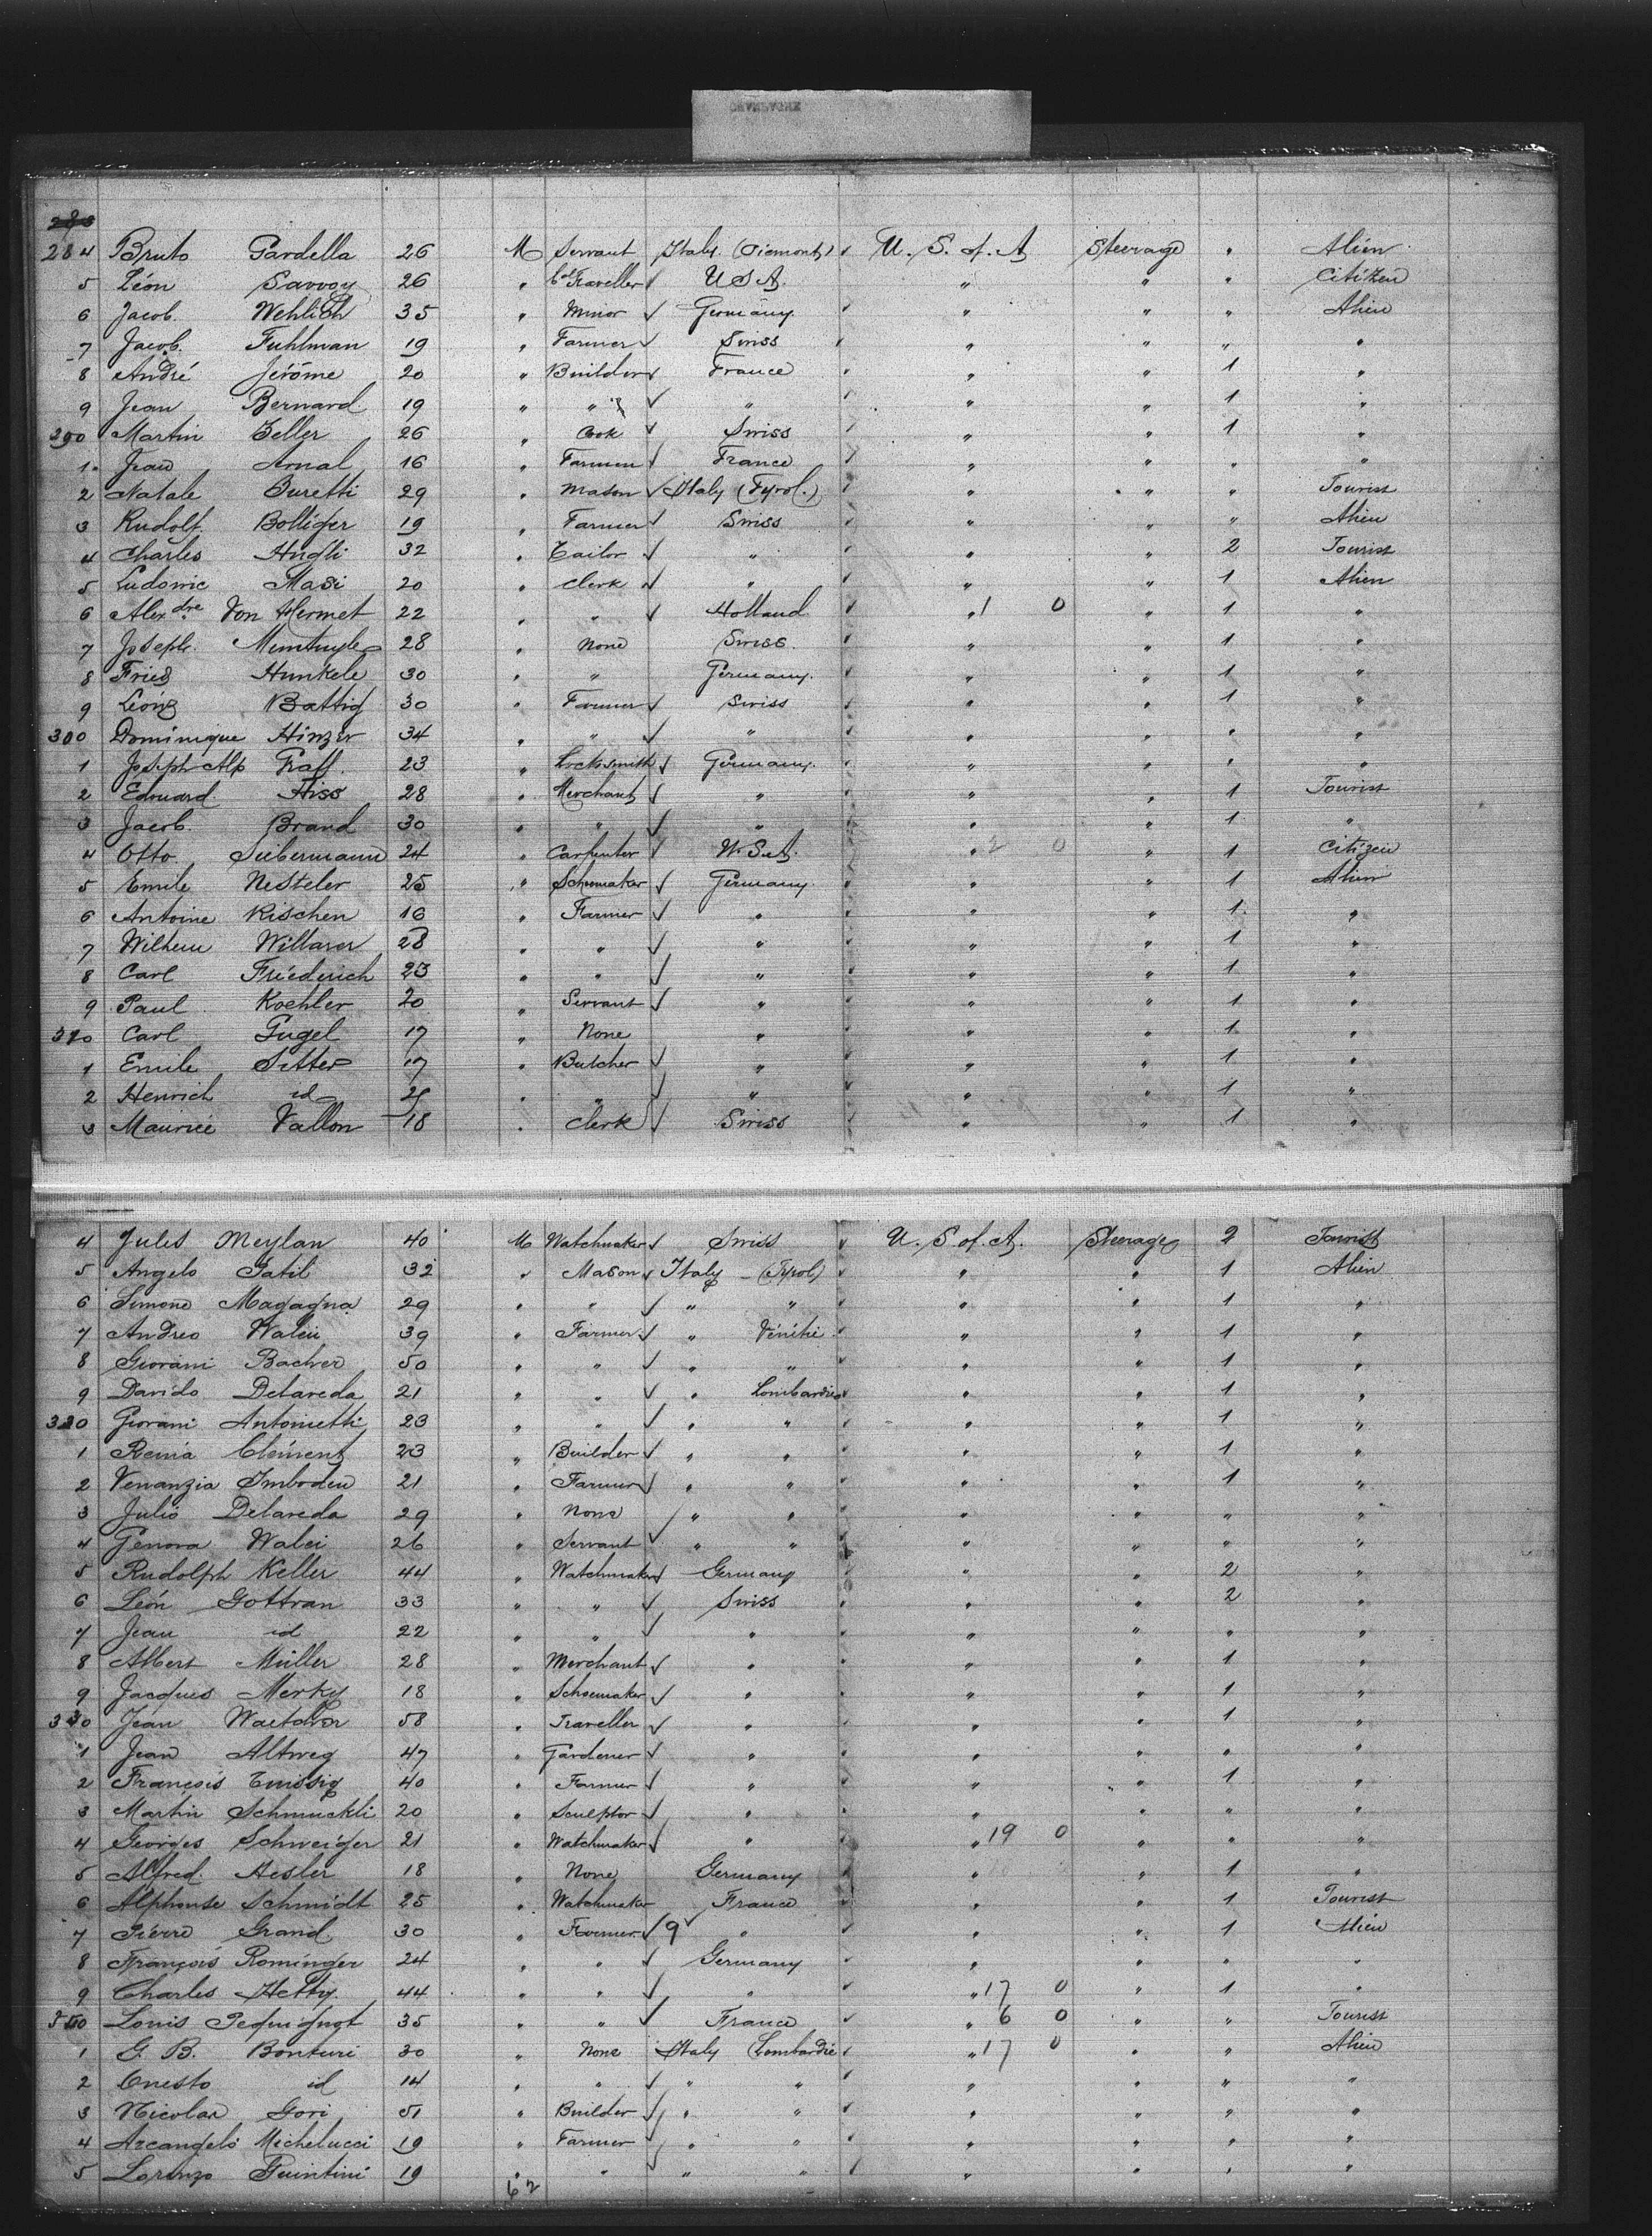 284 Bruto Gardella 26 M Servant Italy (Piemont) U. S. of. A Steerage " Alien
5 Léon Savvoy 26 " Traveller U S A. " " " Citizen
6 Jacob. Wehlich 35 " Minor Germany " " " Alien
7 Jacob. Fuhlman 19 " Farmer Swiss " " " "
8 André Jérôme 20 " Builder France " " 1 "
9 Jean Bernard 19 " " " " " 1 "
290 Martin Zeller 26 " Cook Swiss " " 1 "
1 Jean Arnal 16 " Farmer France " " " "
2 Natale Buretti 29 " Mason Italy (Tyrol.) " " " Tourist
3 Rudolf Bolliger 19 " Farmer Swiss " " " Alien
4 Charles Hugli 32 " Tailor " " " 2 Tourist
5 Ludowic Masi 20 " Clerk " " " 1 Alien
6 Alexdre Von Hermet 22 " " Holland " 1 0 " 1 "
7 Joseph. 28 " None Swiss. " " 1 "
8 Fried Hunkele 30 " " Germany. " " 1 "
9 Léonz Battig 30 " Farmer Swiss " " 1 "
300 Dominique Hinzer 34 " " " " " " "
1 Joseph Alp Graff. 23 " Locksmith Germany. " " " "
2 Edouard Hiss 28 " Merchant " " " 1 Tourist
3 Jacob. Brand 30 " " " " " 1 "
4 Otto Siebermann 24 " Carpenter U. S. A. " 2 0 " 1 Citizen
5 Emile Nesteler 25 " Schomaker Germany. " " 1 Alien
6 Antoine Kischen 16 " Farmer " " " 1 "
7 Wilhem Willarer 28 " " " " " 1 "
8 Carl Friederich 23 " " " " " 1 "
9 Paul Koehler 20 " Servant " " " 1 "
310 Carl Gugel 17 " None " " " 1 "
1 Emile Sitter 17 " Butcher " " " 1 "
2 Henrich id " " " " " 1 "
3 Maurice Vallon 18 " Clerk Swiss " " 1 "
4 Jules Meylan 40 M Watchmaker Swiss U. S. of. A. Steerage 2 Tourist
5 Angelo Patil 32 " Mason Italy (Tyrol) " " 1 Alien
6 Simone Magagna 29 " " " " " " 1 "
7 Andreo Walcii 39 " Farmer " Vénétie " " 1 "
8 Giovani Bacher 50 " " " " " " 1 "
9 Davido Delareda 21 " " " Lombardie " " 1 "
320 Giovani Antonietti 23 " " " " " " 1 "
1 Remia Clément 23 " Builder " " " " 1 "
2 Venanzia Imboden 21 " Farmer " " " " 1 "
3 Julio Delareda 29 " None " " " " " "
4 Genova Walci 26 " Servant " " " " " "
5 Rudolph Keller 44 " Watchmaker Germany " " 2 "
6 Léon Gottran 33 " " Swiss " " 2 "
7 Jean id 22 " " " " " " "
8 Albert Müller 28 " Merchant " " " 1 "
9 Jacques Merky 18 " Schoemaker " " " 1 "
330 Jean Waelchor 58 " Traveller " " " 1 "
1 Jean Altweg 47 " Gardener " " " " "
2 François Cuissig 40 " Farmer " " " 1 "
3 Martin Schmuckli 20 " Sculptor " " " " "
4 Georges Schweiger 21 " Watchmaker " " 19 0 " " "
5 Alfred. Hesler 18 " None Germany " " 1 "
6 Alphonse Schmidt 25 " Watchmaker France " " 1 Tourist
7 Pierre Grand 30 " Farmer 9 " " " 1 Alien
8 François Rominger 24 " " Germany " " " "
9 Charles Hetty 44 " " " " 17 0 " 1 "
Louis Pequignot 35 " " France " 6 0 " " Tourist
1 G. B. Bonturi 30 " None Italy Lombardie " 17 0 " " Alien
2 Onesto id 14 " " " " " " " "
3 Nicolao Gori 51 " Builder " " " " " "
4 Arcangelo Michelucci 19 " Farmer " " " " " "
5 Lorenzo Guintini 19 " " " " " " " "
62